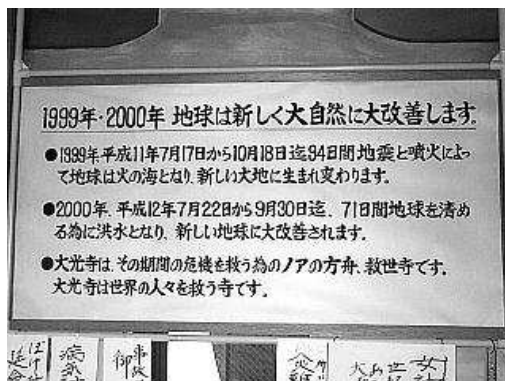 1999年・2000年 地球は新しく大自然に大改善します.
●1999年平成11年7月17日から10月18日迄94日間地震と噴火によっ
て地球は火の海となり、新しい大地に生まれ変わります.
●2000年、平成12年7月22日から9月30日迄、71日間地球を清め
る為に洪水となり、新しい地球に大改善されます.
●大光寺は、その期間の危機を救う為のノアの方舟、救世寺です.
大光寺は世界の人々を救う寺です.